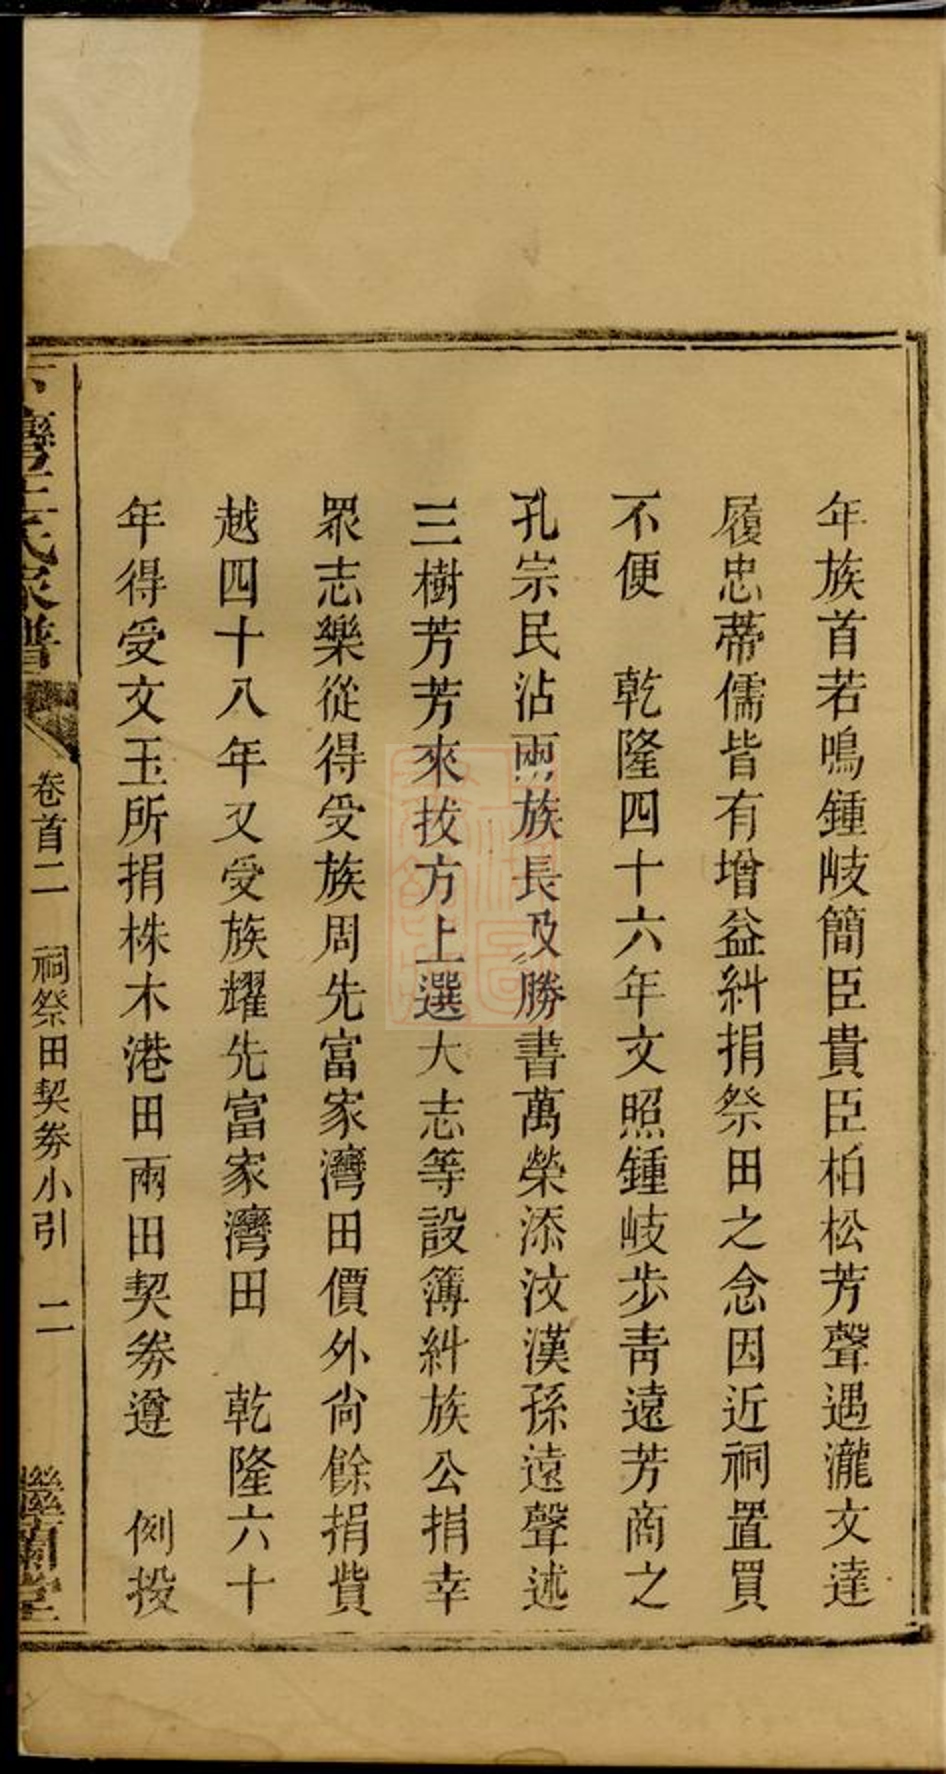 年族首若鳴鍾岐簡臣貴臣柏松芳聲遇瀧文達
履忠蒂儒皆有增益糾捐祭田之念因近祠置買
不便　乾隆四十六年文照鍾岐步青遠芳商之
孔宗民沾兩族長及勝書萬榮添汶漢孫遠聲述
三樹芳芳來拔方上選大志等設簿糾族公捐幸
眾志樂從得受族周先富家灣田價外尚餘捐貲
越四十八年又受族耀先富家灣田　乾隆六十
年得受文玉所捐株木港田兩田契劵遵　例投
灣王氏家譜
卷首二　祠祭田契劵小引　二